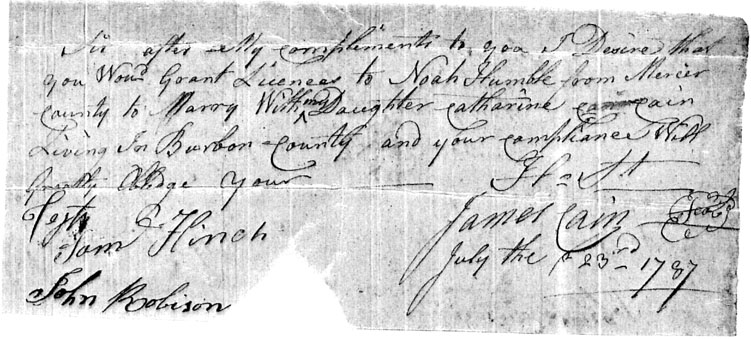 Sir after My compliments to you I Desire that
you Woud Grant Licences to Noah Humble from Mercer
county to Marry With my Daughter catharine cain
Living In Burbon county and your compliance Will
Greatly Oblige your H - St
Test
Sam Hinch
James Cain Seal
July the 23rd 1787
John Robison